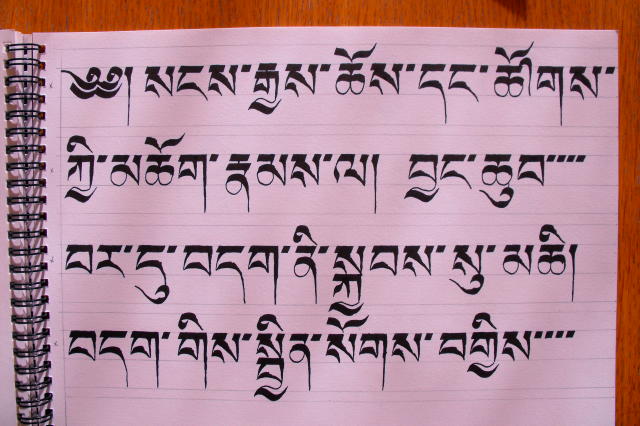 ༄༅། སངས་རྒྱས་ཆོས་དང་ཚོགས་
ཀྱི་མཆོག་རྣམས་ལ། བྱང་ཆུབ་་་་
བར་དུ་བདག་ནི་སྐྱབས་སུ་མཆི།
བདག་གིས་སྦྱིན་སོགས་བགྱིས་་་་